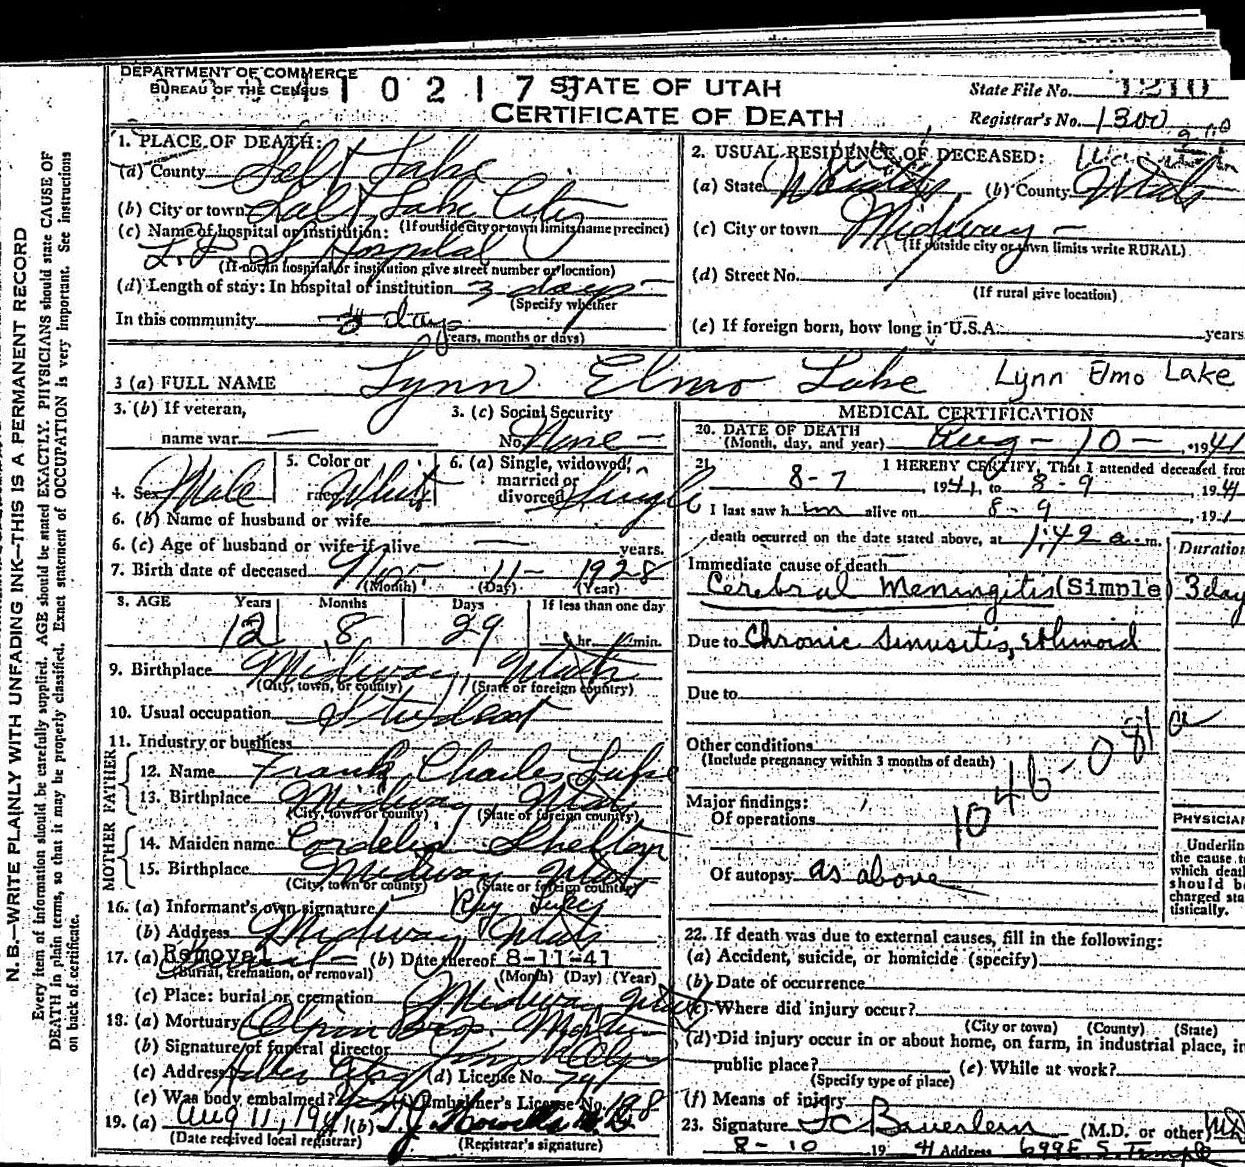 DEPARTMENT OF COMMERCE
BUREAU OF THE CENSUS
STATE OF UTAH
CERTIFICATE OF DEATH
State File No. 1210
Registrar's No. 1300
N.B.—WRITE PLAINLY WITH UNFADING INK—THIS IS A PERMANENT RECORD
Every item of information should be carefully supplied. AGE should be stated EXACTLY. PHYSICIANS should state CAUSE OF
DEATH in plain terms, so that it may be properly classified. Exact statement of OCCUPATION is very important. See instructions
on back of certificate.
1. PLACE OF DEATH:
(a) County Salt Lake
(b) City or town Salt Lake City
(If outside city or town limits name precinct)
(c) Name of hospital or institution:
L.D.S. Hospital
(If not in hospital or institution give street number or location)
(d) Length of stay: In hospital or institution 3 days
(Specify whether
In this community days
years, months or days)
2. USUAL RESIDENCE OF DECEASED:
(a) State (b) County Utah
(c) City or town Midway
(If outside city or town limits write RURAL)
(d) Street No.
(If rural give location)
(e) If foreign born, how long in U.S.A. years
3 (a) FULL NAME Lynn Elmo Lake Lynn Elmo Lake
3. (b) If veteran,
name war —
3. (c) Social Security
No. None —
4. Sex Male
5. Color or
race White
6. (a) Single, widowed,
married or
divorced Single
6. (b) Name of husband or wife
6. (c) Age of husband or wife if alive — years.
7. Birth date of deceased Nov. 11 - 1928
(Month) (Day) (Year)
8. AGE Years Months Days If less than one day
12 8 29 hr. min.
9. Birthplace Midway, Utah
(City, town, or county) (State or foreign country)
10. Usual occupation Student
11. Industry or business
FATHER
12. Name Frank Charles Lake
13. Birthplace Midway, Utah
(City, town or county) (State of foreign country)
MOTHER
14. Maiden name Cordelia Shelton
15. Birthplace Midway Utah
(City, town or county) (State or foreign country)
16. (a) Informant's own signature Ray
(b) Address Midway, Utah
17. (a) Removal (b) Date thereof 8-11-41
(Burial, cremation, or removal) (Month) (Day) (Year)
(c) Place: burial or cremation Midway Utah
18. (a) Mortuary Olpin Bros.
(b) Signature of funeral director
(c) Address Heber City (d) License No.
(e) Was body embalmed? (f) Embalmer's License No. 198
19. (a) Aug 11, 1941 (b)
(Date received local registrar) (Registrar's signature)
MEDICAL CERTIFICATION
20. DATE OF DEATH
(Month, day, and year) Aug - 10 - , 1941
21 I HEREBY CERTIFY, That I attended deceased from
8-7, 1941, to 8-9, 1941
I last saw him alive on 8-9, 1941
death occurred on the date stated above, at 1:42 a.m.
Duration
Immediate cause of death
Cerebral Meningitis (Simple) 3 day
Due to Chronic Sinusitis, ethmoid
Due to
Other conditions
(Include pregnancy within 3 months of death)
Major findings:
Of operations
1046-081
Of autopsy as above
PHYSICIAN
Underline
the cause to
which death
should be
charged sta-
tistically.
22. If death was due to external causes, fill in the following:
(a) Accident, suicide, or homicide (specify)
(b) Date of occurrence
(c) Where did injury occur?
(City or town) (County) (State)
(d) Did injury occur in or about home, on farm, in industrial place, in
public place? (e) While at work?
(Specify type of place)
(f) Means of injury
23. Signature (M.D. or other) MD
8-10 1941 Address 699 E. S. Temple